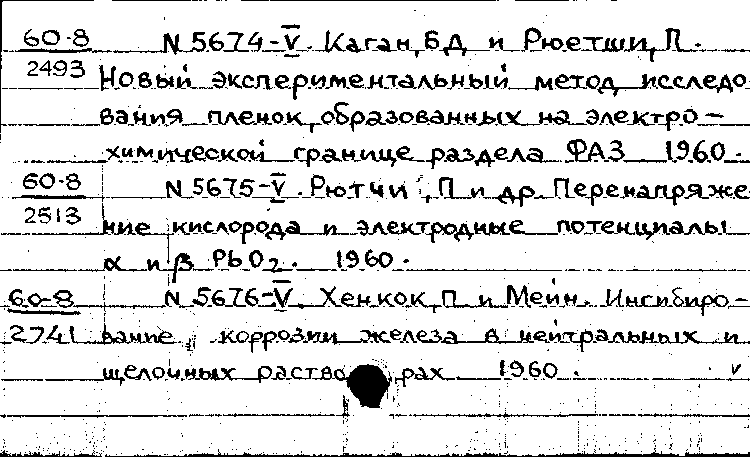 60-8 N 5674-V. Каган, Б.Д и Рюетши, П.
2493 Новый экспериментальный метод исследо
вания пленок, образованных на электро-
химической границе раздела ФАЗ 1960.
60-8 N 5675-V. Рютчи, П и др. Перенапряже
2513 ние кислорода и электродные потенциалы
α и β PbO2. 1960.
60-8 N 5676-V. Хенкок, П и Мейн. Ингибиро-
2741 вание коррозии железа в нейтральных и
щелочных растворах 1960. v